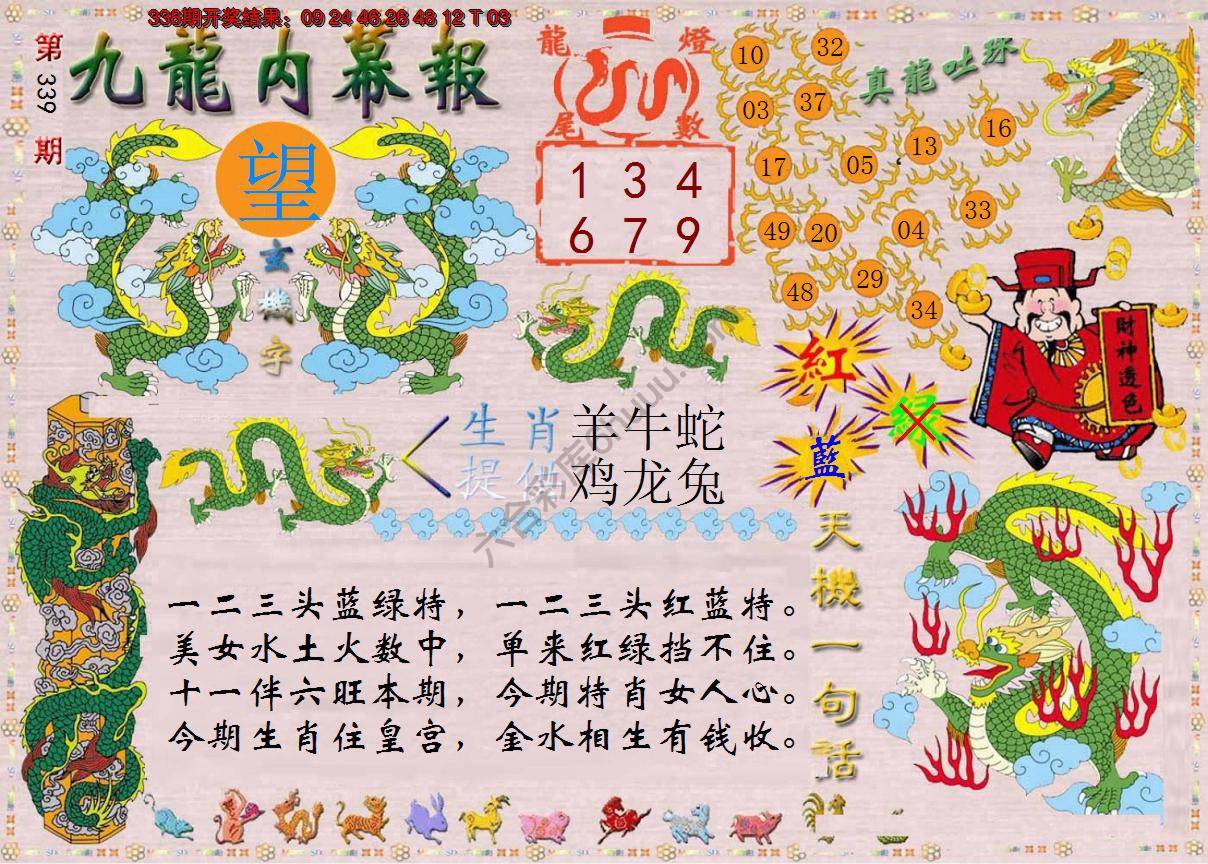 338期开奖结果：09 24 46 26 48 12 T 03
第339期
九龍内幕報
望
玄機字
龍燈尾數
1 3 4
6 7 9
真龍吐珠
10 32
03 37
17 05 13 16
49 20 04 33
48 29 34
財神透色
紅
绿
藍
生肖
提供
羊牛蛇
鸡龙兔
天機一句話
一二三头蓝绿特，一二三头红蓝特。
美女水土火数中，单来红绿挡不住。
十一伴六旺本期，今期特肖女人心。
今期生肖住皇宫，金水相生有钱收。